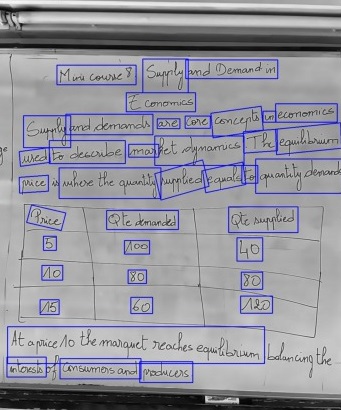 Mini course 8 Supply and Demand in
Economics
Supply and demands are core concepts in economics
used to describe market dynamics The equilibrium
price is where the quantity supplied equals to quantity demands
Price Qte demanded Qte supplied
5 100 40
10 80 80
15 60 120
At a price 10 the marquet reaches equilibrium balancing the
interests of consumers and producers